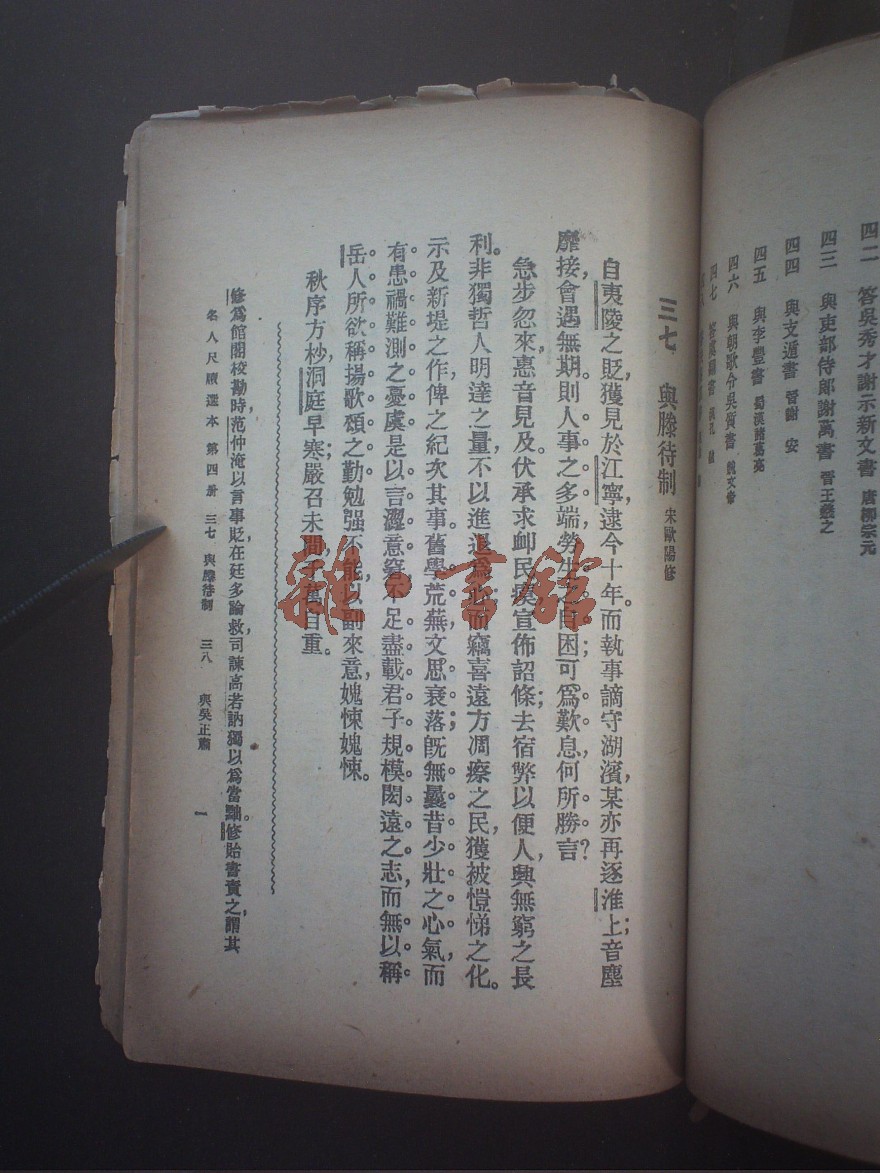 四二 答吳秀才謝示新文書 唐柳宗元
四三 與吏部侍郎謝萬書 晉王羲之
四四 與支遁書 晉謝安
四五 與李豐書 蜀漢諸葛亮
四六 與朝歌令吳質書 魏文帝
四七
三七 與滕待制 宋歐陽修
自夷陵之貶，獲見於江寧，逮今十年。而執事謫守湖濱，某亦再逐淮上；音塵
靡接，會遇無期，則人事之多端，勞生之自困，可爲歎息，何所勝言？
急步忽來，惠音見及。伏承求卹民瘼，宣佈詔條；去宿弊以便人，興無窮之長
利。非獨哲人明達之量，不以進退爲心；而竊喜遠方凋瘵之民，獲被愷悌之化。
示及新堤之作，俾之紀次其事。舊學荒蕪，文思衰落；旣無曩昔少壯之心氣，而
有患禍難測之憂虞。是以言澀意窘，不足盡載君子規模閎遠之志，而無以稱
岳人所欲稱揚歌頌之勤。勉强不能以副來意，媿悚媿悚。
秋序方杪，洞庭早寒；嚴召未間，千萬自重。
修爲館閣校勘時，范仲淹以言事貶，在廷多論救，司諫高若訥獨以爲當黜。修貽書責之，謂其
名人尺牘選本 第四册 三七 與滕待制 三八 與吳正肅 一
雜·書館